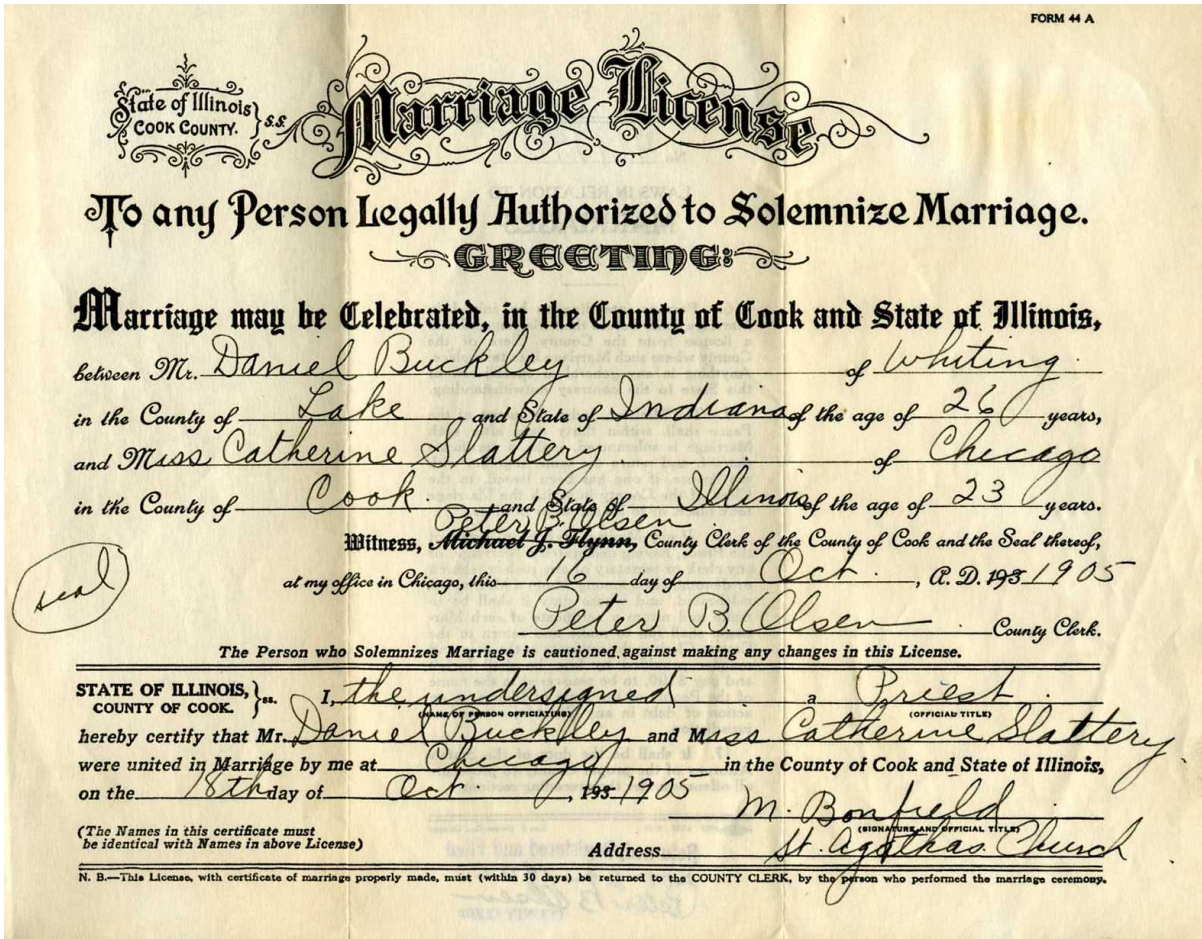 FORM 44 A
State of Illinois } S.S.
COOK COUNTY.
Marriage License
To any Person Legally Authorized to Solemnize Marriage.
GREETING:
Marriage may be Celebrated, in the County of Cook and State of Illinois,
between Mr. Daniel Buckley of Whiting
in the County of Lake and State of Indiana of the age of 26 years,
and Miss Catherine Slattery of Chicago
in the County of Cook and State of Illinois of the age of 23 years.
Peter B. Olsen
Witness, Michael J. Flynn, County Clerk of the County of Cook and the Seal thereof,
seal
at my office in Chicago, this 16 day of Oct. , A. D. 193 1905
Peter B. Olsen County Clerk.
The Person who Solemnizes Marriage is cautioned against making any changes in this License.
STATE OF ILLINOIS, } ss. I, the undersigned a Priest
COUNTY OF COOK. (NAME OF PERSON OFFICIATING) (OFFICIAL TITLE)
hereby certify that Mr. Daniel Buckley and Miss Catherine Slattery
were united in Marriage by me at Chicago in the County of Cook and State of Illinois,
on the 18th day of Oct. , 193 1905
M. Bonfield
(SIGNATURE AND OFFICIAL TITLE)
(The Names in this certificate must
be identical with Names in above License)
Address St. Agathas Church
N. B.—This License, with certificate of marriage properly made, must (within 30 days) be returned to the COUNTY CLERK, by the person who performed the marriage ceremony.